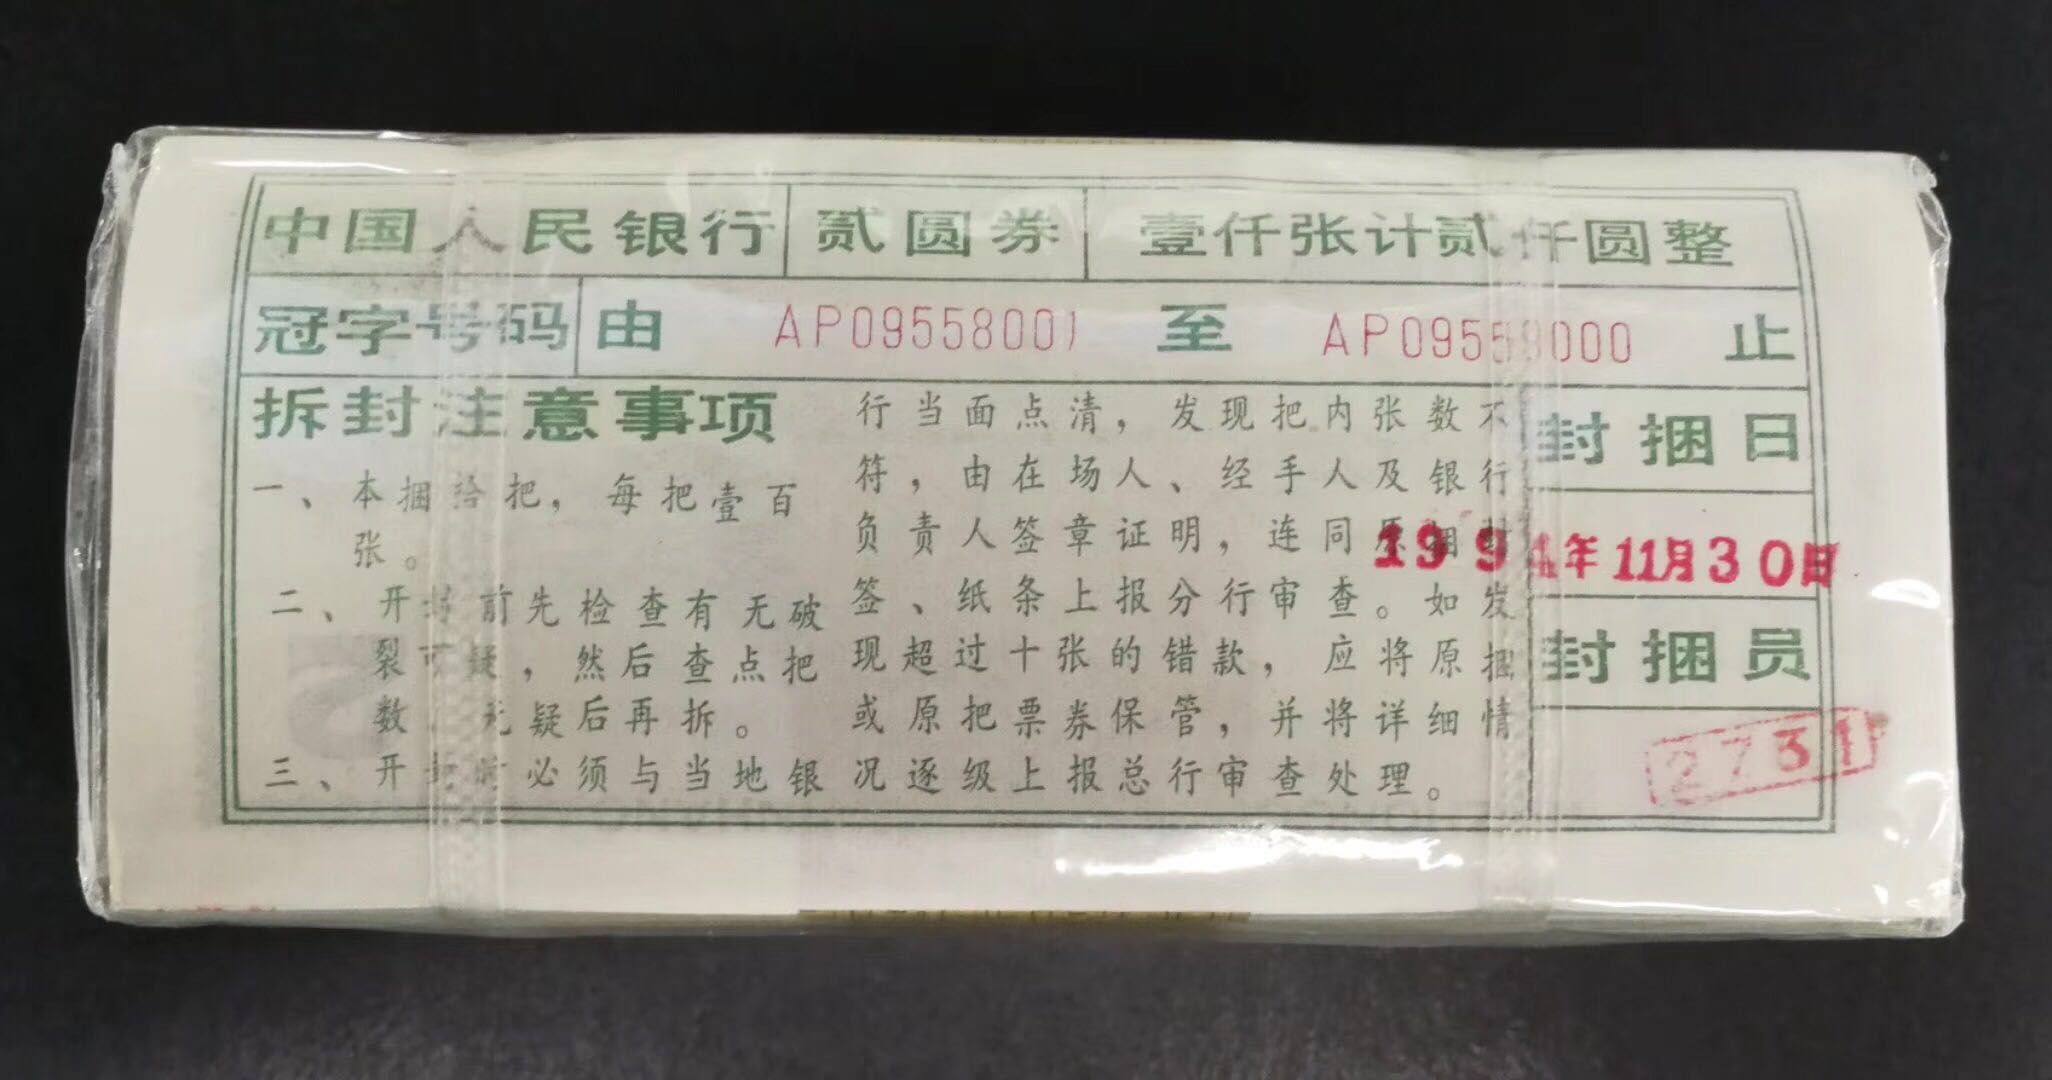 中国人民银行 贰圆券 壹仟张计贰仟圆整
冠字号码 由 AP09558001 至 AP09559000 止
拆封注意事项
一、本捆拾把，每把壹百
张。
二、开封前先检查有无破
裂可疑，然后查点把
数，无疑后再拆。
三、开封时必须与当地银
行当面点清，发现把内张数不
符，由在场人、经手人及银行
负责人签章证明，连同原捆封
签、纸条上报分行审查。如发
现超过十张的错款，应将原捆
或原把票券保管，并将详细情
况逐级上报总行审查处理。
封捆日
1994年11月30日
封捆员
2731